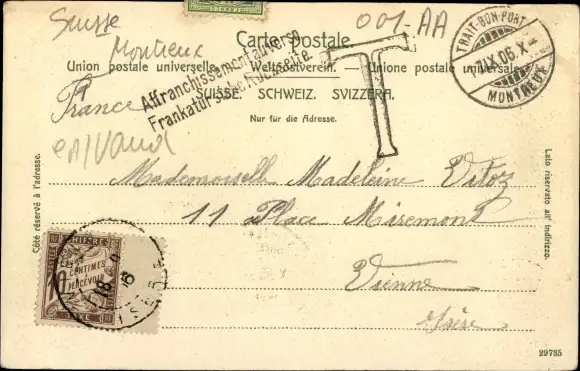 Suisse
Montreux
001-AA
Carte postale.
Union postale universelle. Weltpostverein. Unione postale universale.
Affranchissement au verso
Frankatur siehe Rückseite
T
SUISSE. SCHWEIZ. SVIZZERA.
Nur für die Adresse.
France
en/Vaud
TRAIT-BON PORT
7.IX.06.X
MONTREUX
Côté réservé à l'adresse.
Lato riservato all' indirizzo.
Mademoiselle Madeleine Vitoz
11 Place Miremont
Vienne
Isère
10
CENTIMES
A
PERCEVOIR
TAXE
ISERE
29735